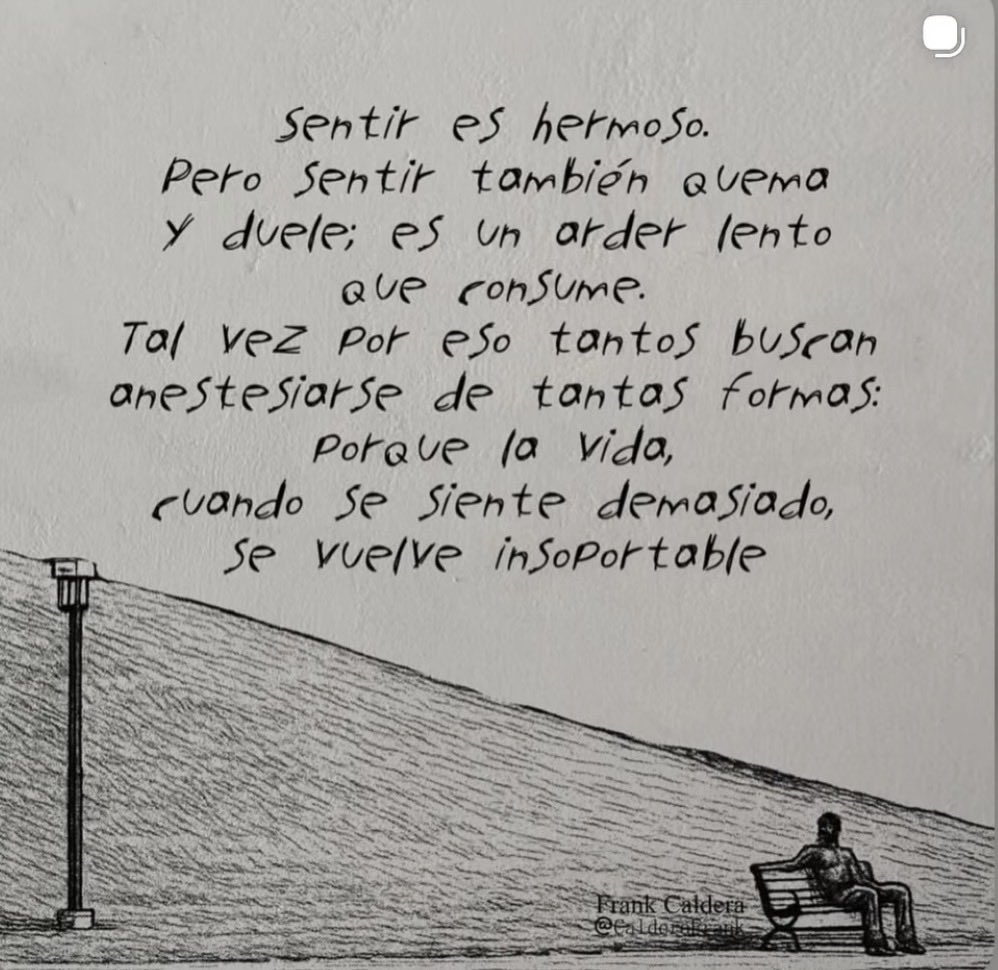 sentir es hermoso.
Pero sentir también quema
y duele; es un arder lento
que consume.
Tal vez por eso tantos buscan
anestesiarse de tantas formas:
porque la vida,
cuando se siente demasiado,
se vuelve insoportable
Frank Caldera
@CalderaFrank